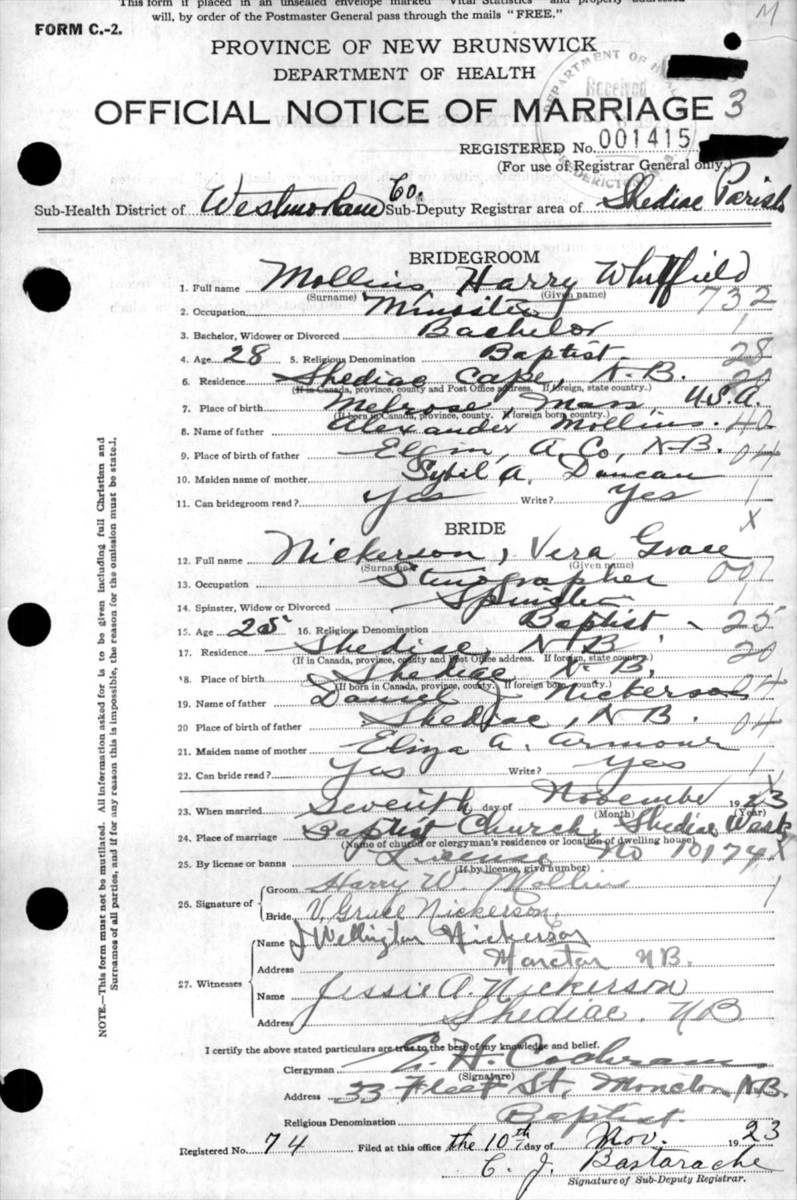 This form if placed in an unsealed envelope marked "Vital Statistics" and properly addressed
will, by order of the Postmaster General pass through the mails "FREE."
M
FORM C.-2.
PROVINCE OF NEW BRUNSWICK
DEPARTMENT OF HEALTH
DEPARTMENT OF HEALTH
Received
OFFICIAL NOTICE OF MARRIAGE 3
REGISTERED No. 001415
(For use of Registrar General only.)
Sub-Health District of Westmorland Co. Sub-Deputy Registrar area of Shediac Parish
BRIDEGROOM
1. Full name Mollins, Harry Whitfield
(Surname) (Given name) 732
2. Occupation Minister
3. Bachelor, Widower or Divorced Bachelor 1
4. Age 28 5. Religious Denomination Baptist 28
6. Residence Shediac Cape, N.B. 20
(If in Canada, province, county and Post Office address. If foreign, state country.)
7. Place of birth Melrose, Mass, U.S.A.
(If born in Canada, province, county. If foreign born country.)
8. Name of father Alexander Mollins 40
9. Place of birth of father Elgin, A. Co, N.B. 04
10. Maiden name of mother Sybil A. Duncan
11. Can bridegroom read? Yes Write? Yes 1
X
BRIDE
12. Full name Nickerson, Vera Grace
(Surname) (Given name)
13. Occupation Stenographer 001
14. Spinster, Widow or Divorced Spinster 1
15. Age 25 16. Religious Denomination Baptist 25
17. Residence Shediac, N.B. 20
(If in Canada, province, county and Post Office address. If foreign, state country.)
18. Place of birth Shediac N.B.
(If born in Canada, province, county. If foreign born country.)
19. Name of father Daniel J Nickerson 04
20 Place of birth of father Shediac, N.B. 04
21. Maiden name of mother Eliza A. Armour
22. Can bride read? Yes Write? Yes 1
23. When married Seventh day of November 1923
(Month) (Year)
24. Place of marriage Baptist Church, Shediac West
(Name of church or clergyman's residence or location of dwelling house)
25. By license or banns License No 10174 X
(If by license, give number)
26. Signature of Groom Harry W. Mollins 1
Bride V. Grace Nickerson
27. Witnesses Name J Wellington Nickerson
Address Moncton N.B.
Name Jessie A. Nickerson
Address Shediac. NB
I certify the above stated particulars are true to the best of my knowledge and belief.
Clergyman E. H. Cochrane
(Signature)
Address 33 Fleet St, Moncton N.B.
Religious Denomination Baptist
Registered No. 74 Filed at this office the 10th day of Nov. 1923
C. J. Bastarache
Signature of Sub-Deputy Registrar.
NOTE.—This form must not be mutilated. All information asked for is to be given including full Christian and
Surnames of all parties, and if for any reason this is impossible, the reason for the omission must be stated.